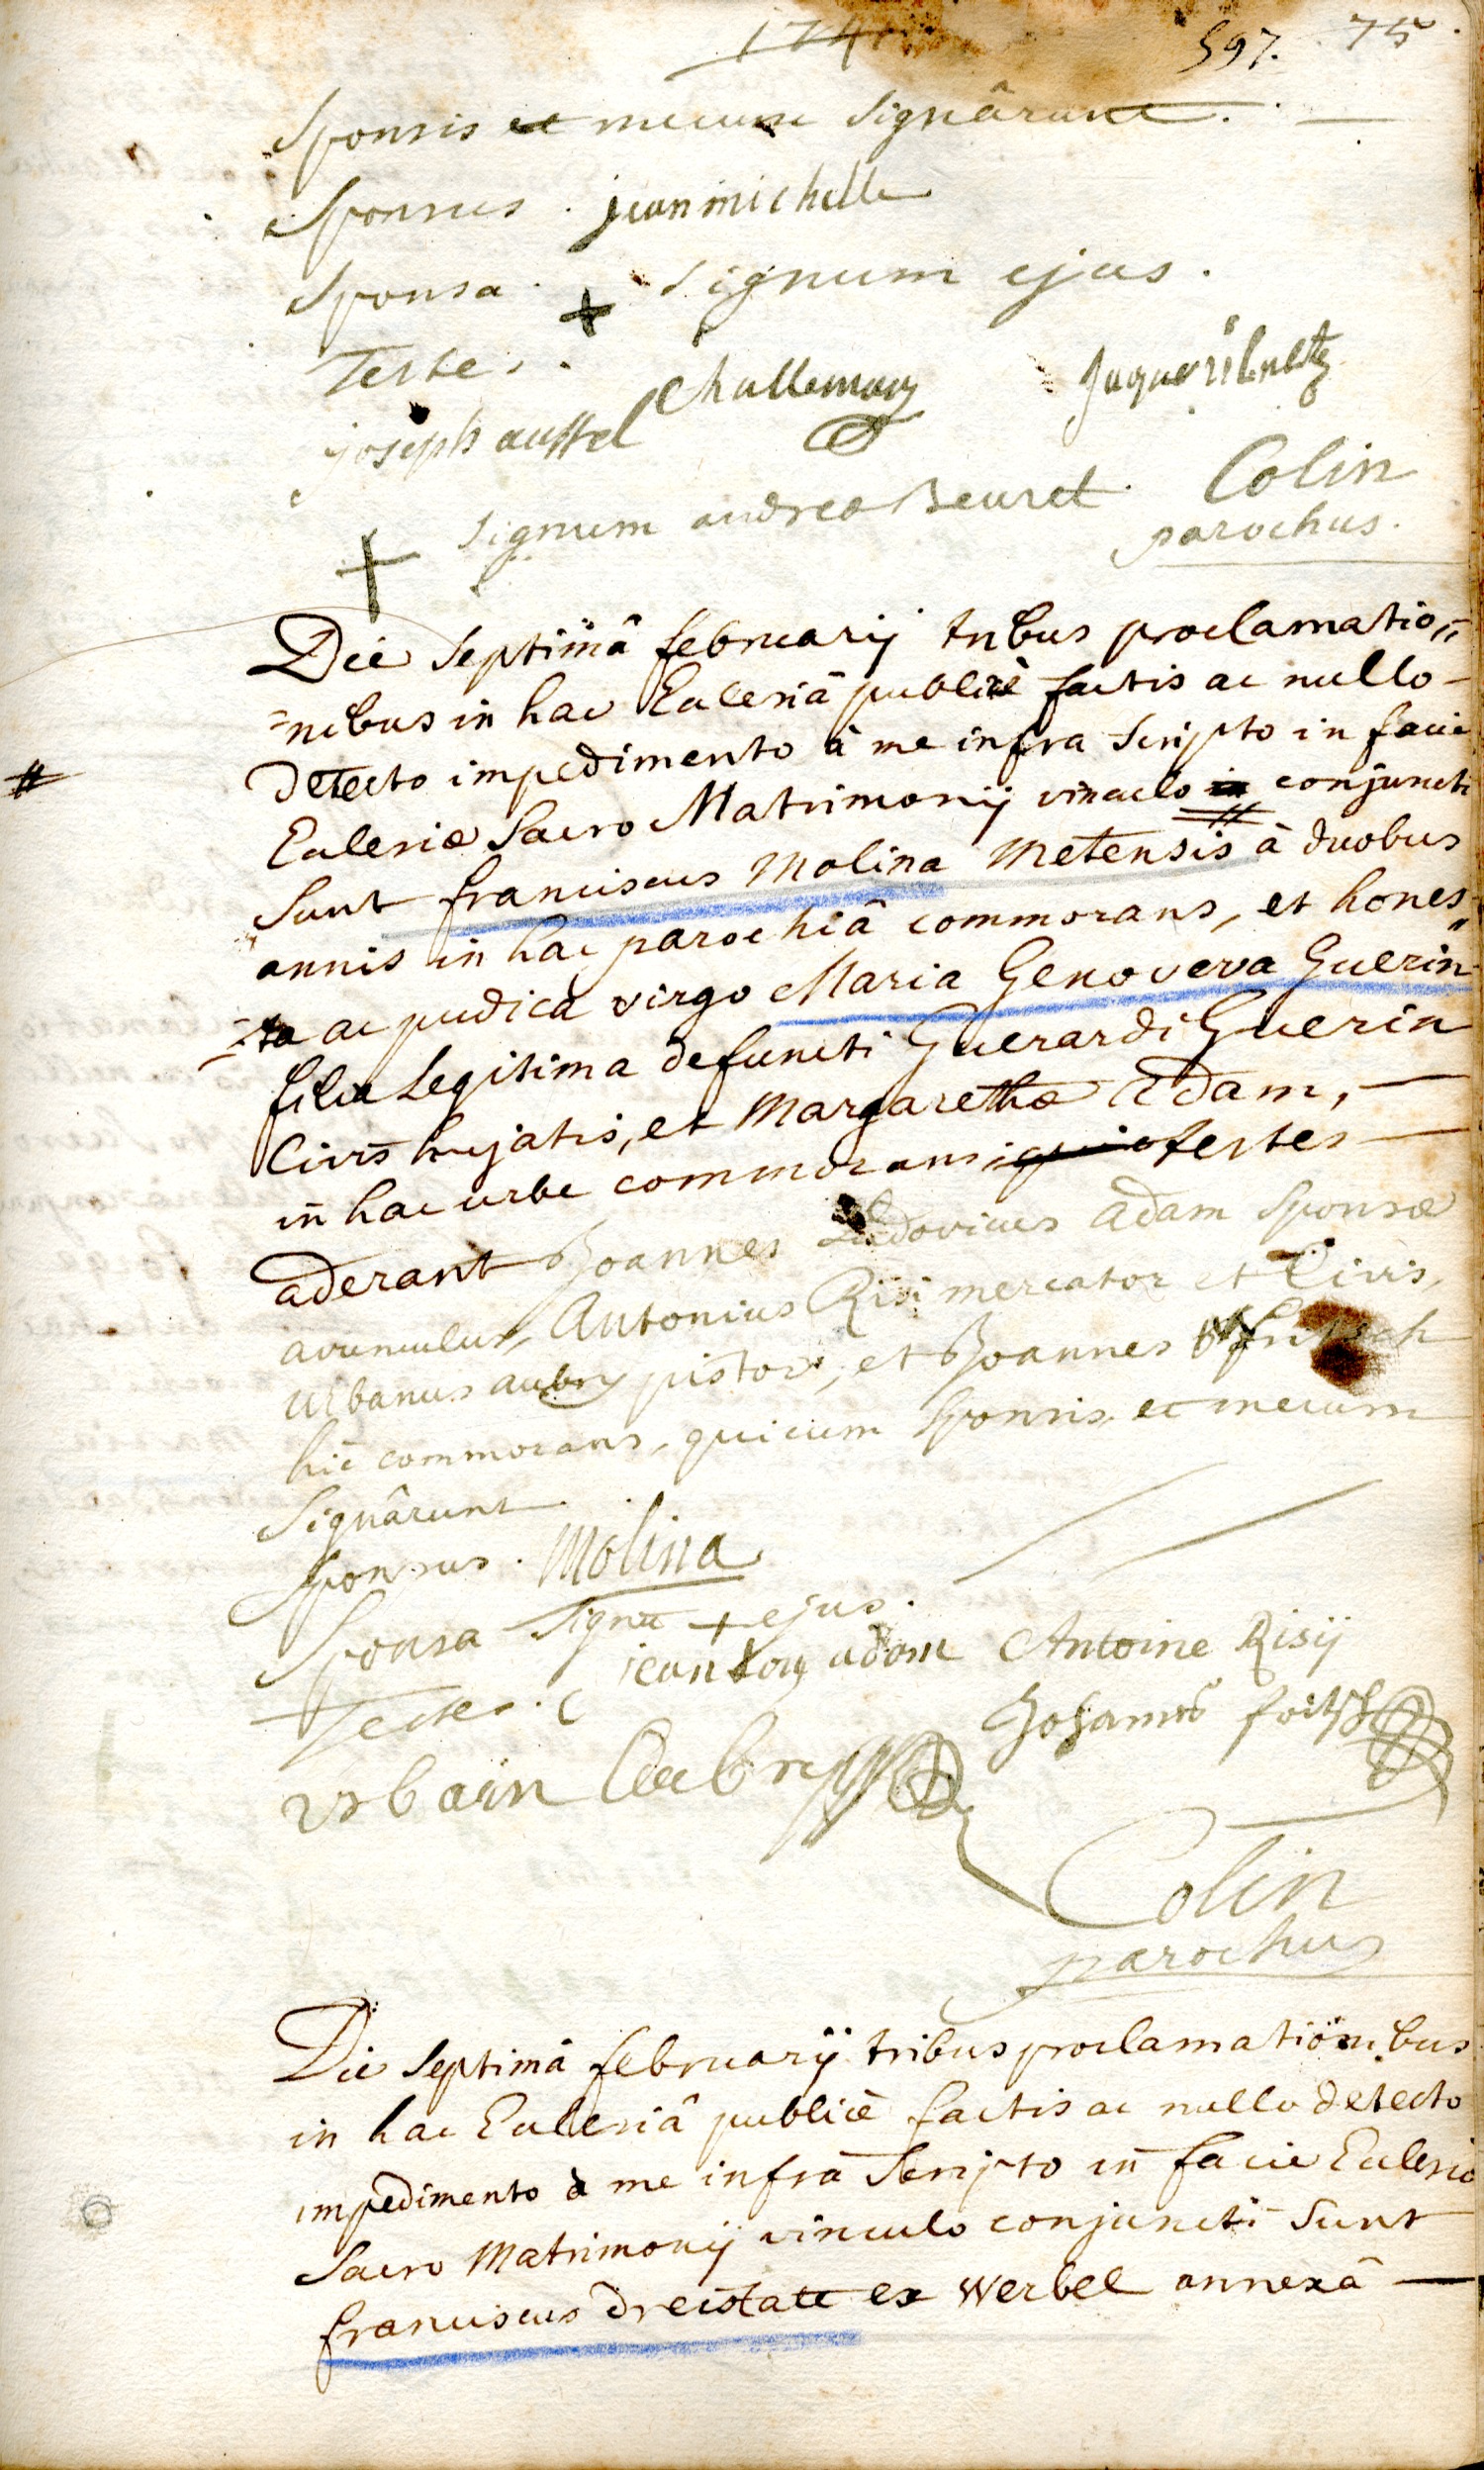 174
597. 75
Sponsis et mecum Signârunt.
Sponsus. jean michelle
Sponsa. + Signum ejus.
Testes.
joseph aussel Challemaux
Signum andreæ Beuret. Colin
parochus.
Die Septimâ februarij tribus proclamatio=
=nibus in hac Ecclesiâ publicè factis ac nullo
Detecto impedimento à me infra Scripto in facie
Ecclesiæ Sacro Matrimonij vinculo in conjuncti
Sunt franciscus Molina Metensis à duobus
annis in hac parochiâ commorans, et hones=
=ta ac pudica virgo Maria Genoveva Guerin
filia Legitima defuncti Guerardi Guerin
Civis hujatis, et Margarethæ Adam,
in hac urbe commorans testes
aderant Joannes Ludovicus Adam Sponsæ
avunculus, Antonius Risi mercator et Civis,
Urbanus aubry pistor, et Joannes fritsch
hic commorans, qui cum Sponsis et mecum
Signârunt.
Sponsus. Molina
Sponsa Signu + ejus.
Testes. jean Louy adam Antoine Risij
Urbain Aubry Johannes fritsch
Colin
parochus
Die Septimâ februarij tribus proclamationibus
in hac Ecclesiâ publicè factis ac nullo detecto
impedimento à me infrà Scripto in facie Ecclesiæ
Sacro Matrimonij vinculo conjuncti Sunt
franciscus Dreistatt ex Werbel annexâ